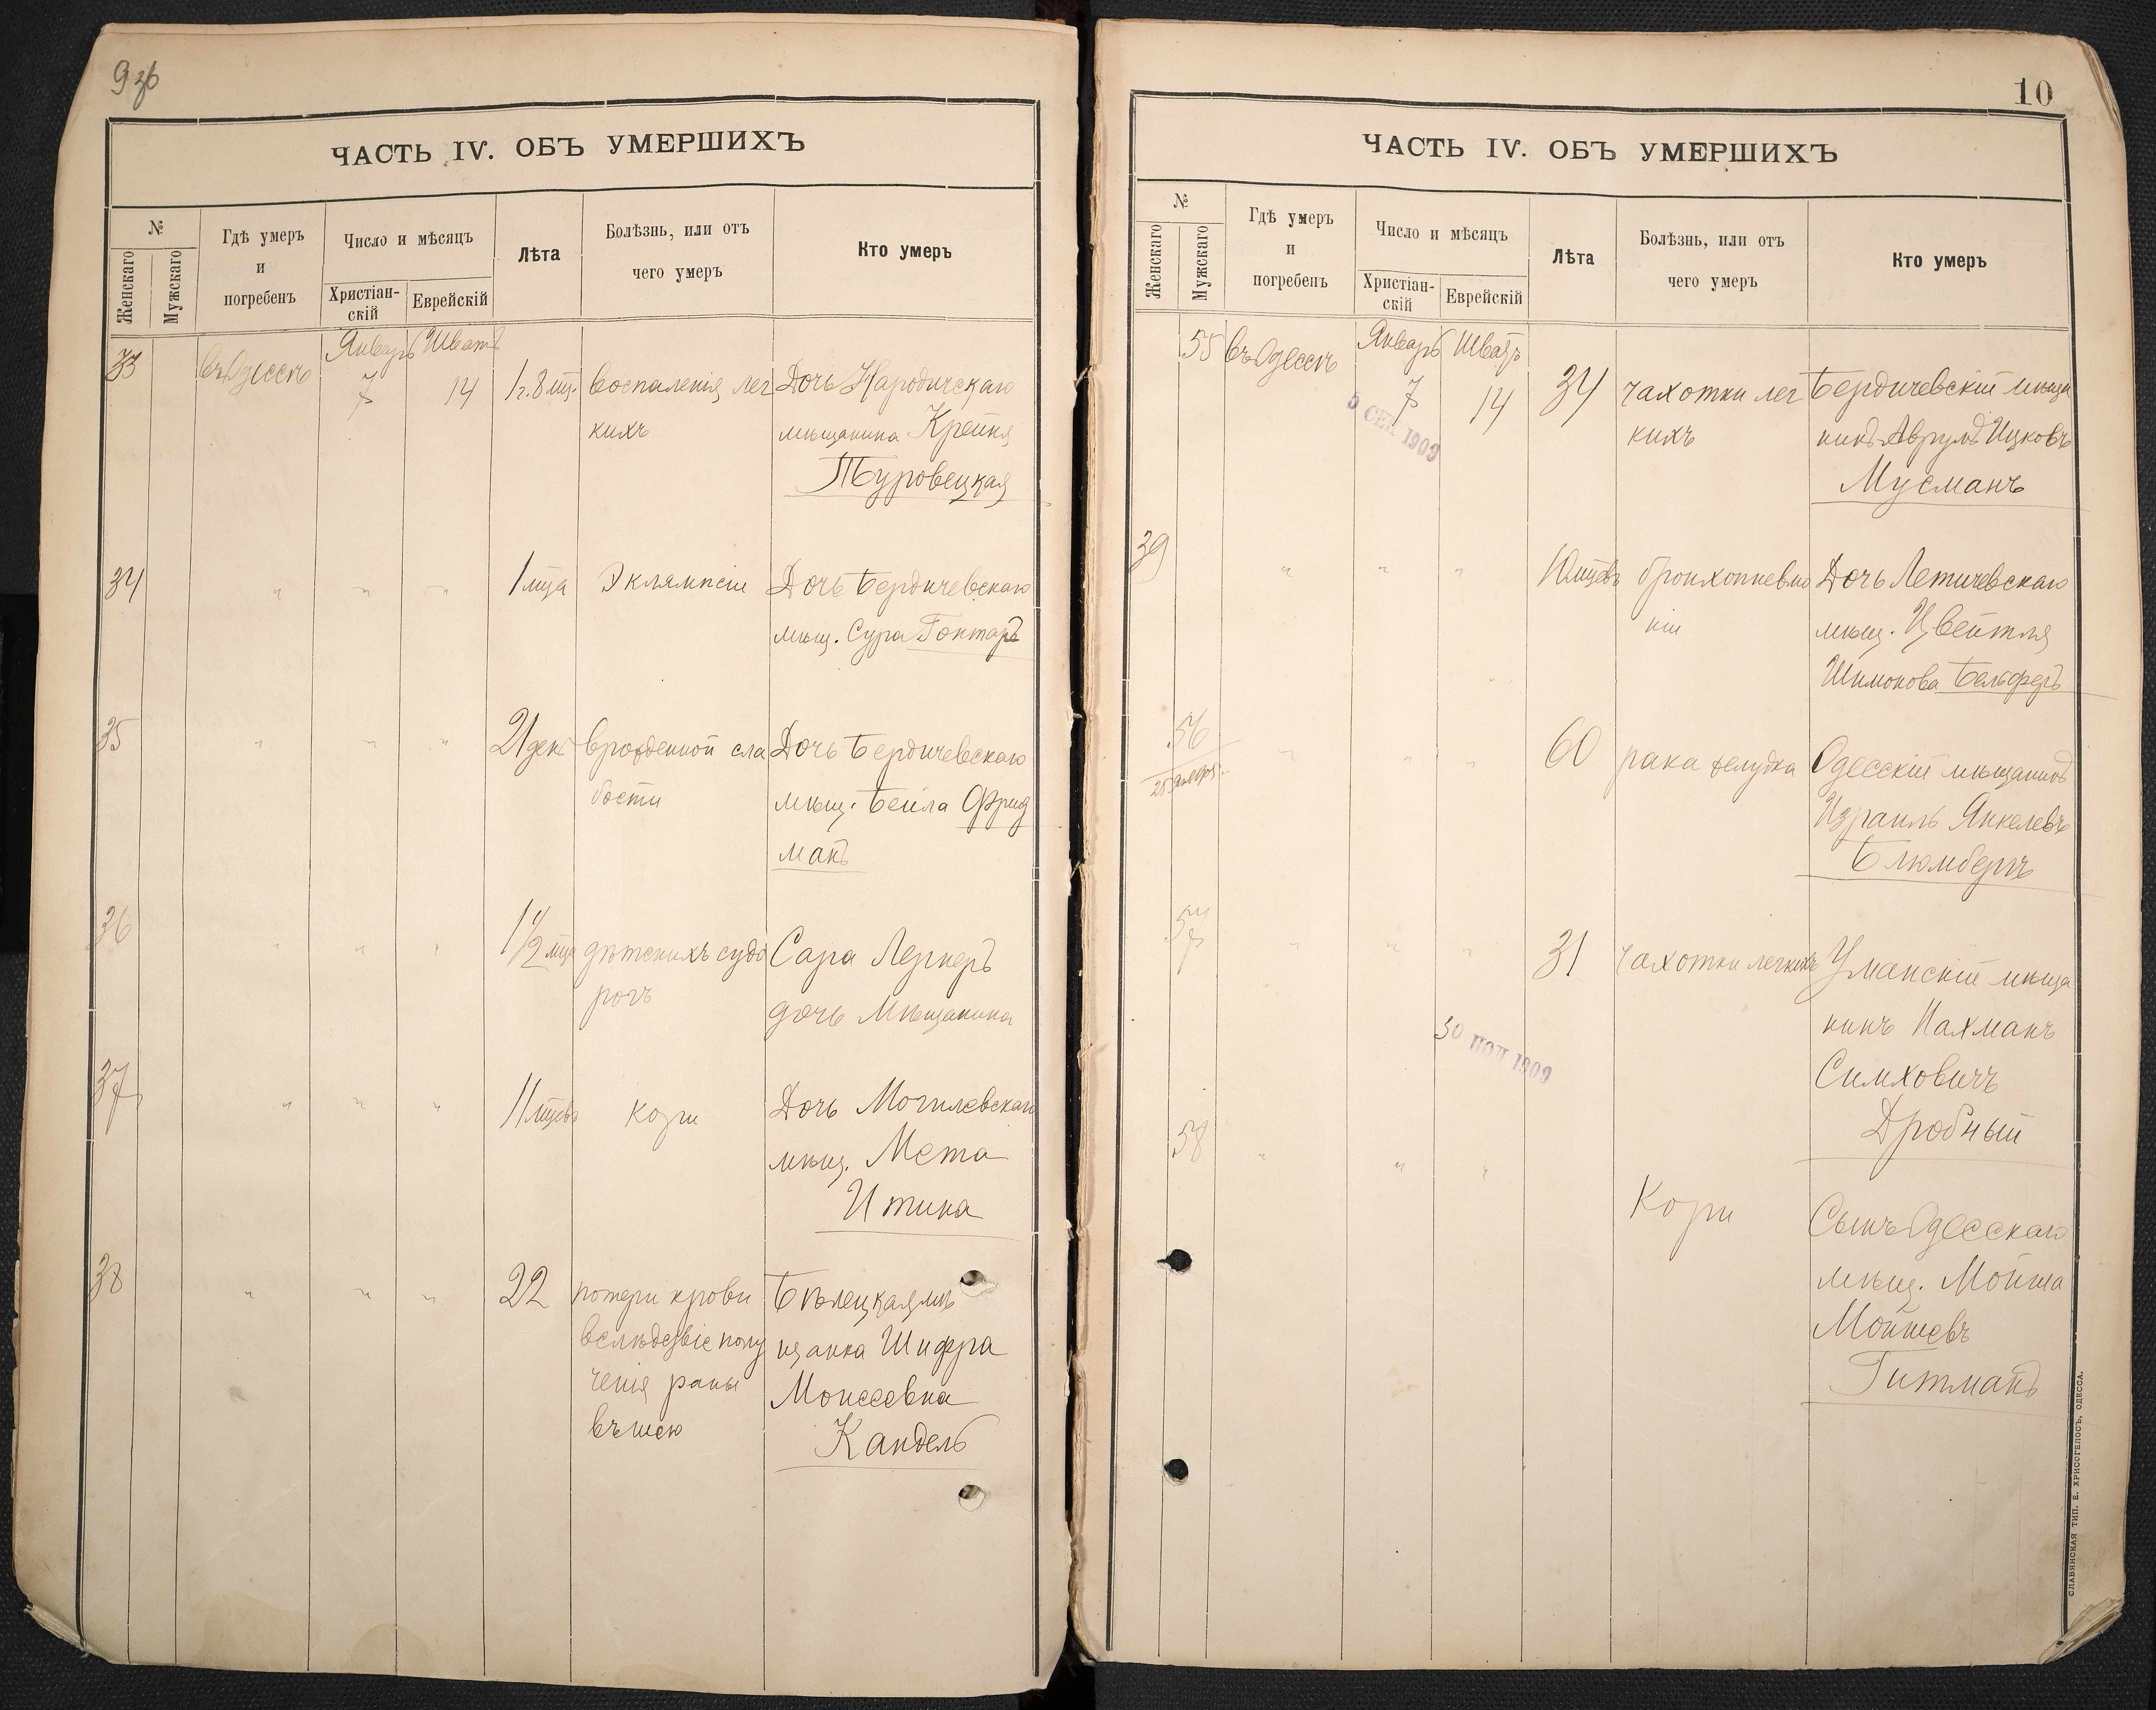 9 об
ЧАСТЬ IV. ОБЪ УМЕРШИХЪ
№
Женскаго
Мужскаго
Гдѣ умеръ
и
погребенъ
Число и мѣсяцъ
Христіан-
скій
Еврейскій
Лѣта
Болѣзнь, или отъ
чего умеръ
Кто умеръ
33
въ Одессѣ
Январь Шватъ
7 14
1 г. 8 мц.
воспаленія лег
кихъ
Дочь Народичскаго
мѣщанина Крейня
Туровецкая
34 " " "
1 мца
Эклямпсіи
Дочь Бердичевскаго
мѣщ. Сура Гонтарь
35 " " "
21 день
врожденной сла
бости
Дочь Бердичевскаго
мѣщ. Бейла Фрид
манъ
36 " " "
1 1/2 мца
дѣтскихъ судо
рогъ
Сара Лернеръ
дочь Мѣщанина
37 " " "
11 мцевъ
Кори
Дочь Могилевскаго
мѣщ. Мета
Итина
38 " " "
22
потери крови
вслѣдствіе полу
ченія раны
въ шею
Бѣлецкая мѣ
щанка Шифра
Моисеевна
Кандель
10
ЧАСТЬ IV. ОБЪ УМЕРШИХЪ
№
Женскаго
Мужскаго
Гдѣ умеръ
и
погребенъ
Число и мѣсяцъ
Христіан-
скій
Еврейскій
Лѣта
Болѣзнь, или отъ
чего умеръ
Кто умеръ
55
въ Одессѣ
Январь Шватъ
7 14
5 СЕН 1909
34
чахотки лег
кихъ
Бердичевскій мѣща
нинъ Аврумъ Ицковъ
Мусманъ
39 " " "
10 мцевъ
бронхопневмо
ніи
Дочь Летичевскаго
мѣщ. Цвейтля
Шимонова Бельферъ
56
25 января
" " "
60
рака желудка
Одесскій мѣщанинъ
Израиль Янкелевъ
Блюмбергъ
57 " " "
31
Чахотки легкихъ
Уманскій мѣща
нинъ Нахманъ
Симховичъ
Дробный
30 НОЯ 1909
58 " " "
Кори
Сынъ Одесскаго
мѣщ. Мойша
Мойшевъ
Гитманъ
СЛАВЯНСКАЯ ТИП. Е. ХРИСОГЕЛОСЪ, ОДЕССА.